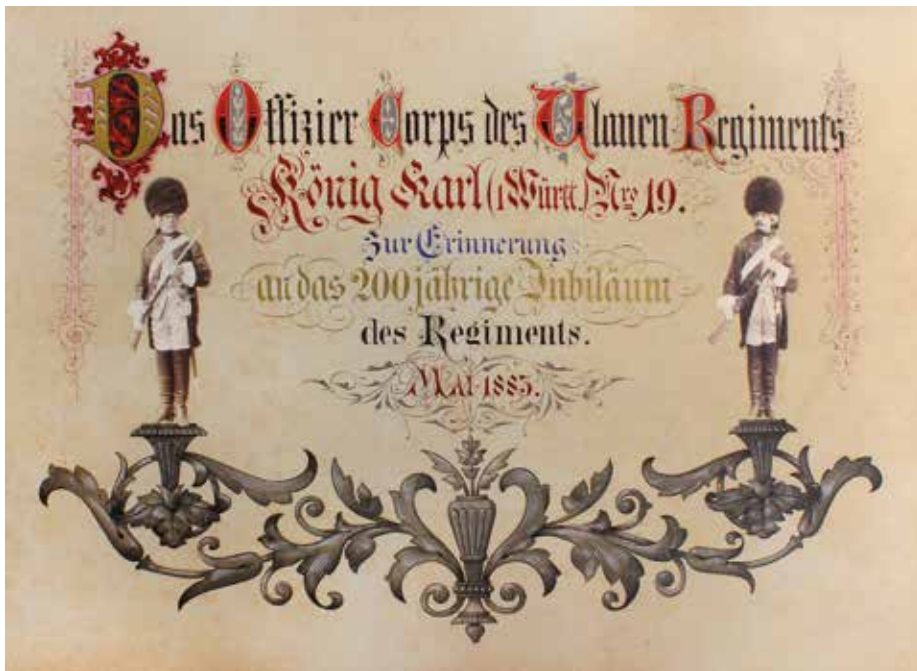 Das Offizier Corps des Ulanen-Regiments
König Karl (1 Württ.) Nro 19.
Zur Erinnerung
an das 200 jährige Jubiläum
des Regiments.
Mai 1883.